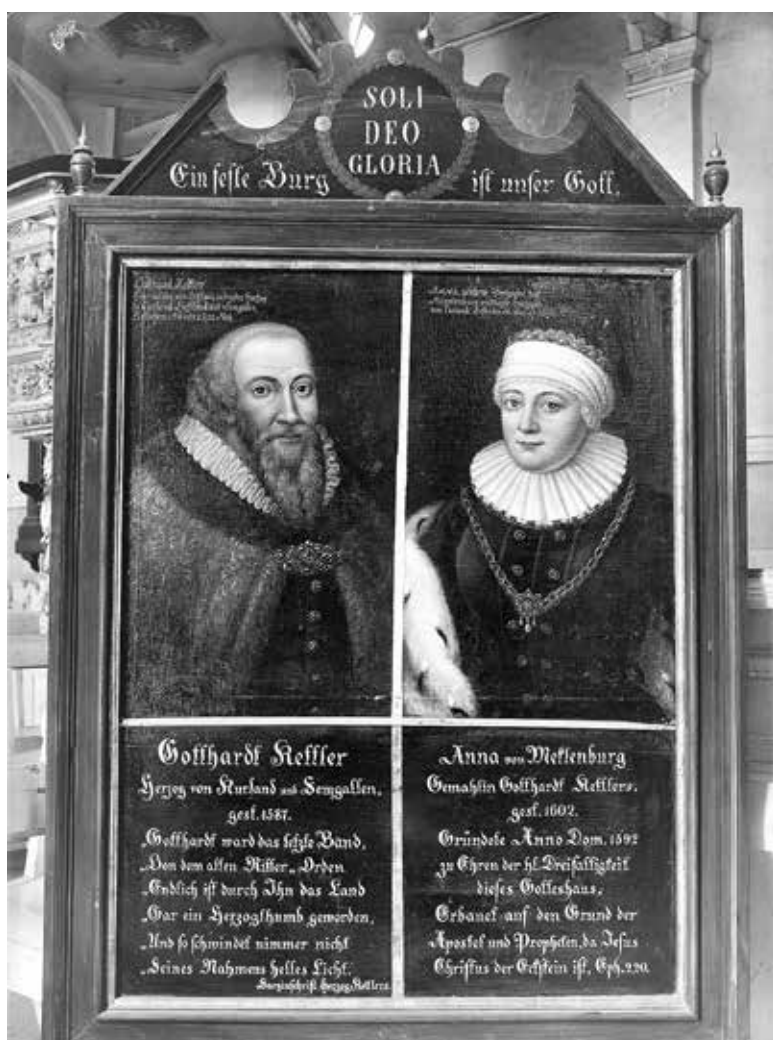 SOLI
DEO
GLORIA
Ein feste Burg ist unser Gott.
Gotthardt Kettler
Herzog von Kurland und Semgallen,
gest. 1587.
„Gotthardt ward das letzte Band,
„Von dem alten Ritter„Orden
„Endlich ist durch Ihn das Land
„Gar ein Herzogthumb geworden,
„Und so schwindet nimmer nicht
„Seines Nahmens helles Licht.
Sarginschrift Herzog Kettlers.
Anna von Meklenburg
Gemahlin Gotthardt Kettlers.
gest. 1602.
Gründete Anno Dom. 1592
zu Ehren der hl. Dreifaltigkeit
dieses Gotteshaus,
Erbauet auf den Grund der
Apostel und Propheten, da Jesus
Christus der Eckstein ist, Eph. 2,20.